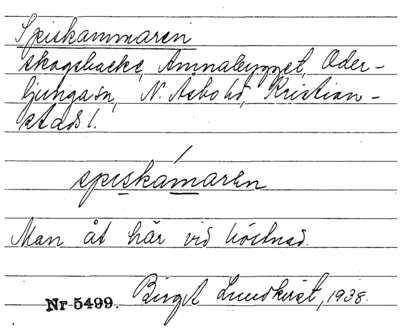 Spiskammaren
skogsbacke, Ammakygget, Oder-
ljunga sn, N. Åsbo hd, Kristian-
stads l.
spiskámarən
Man åt här vid höstnad.
Nr 5499. Birgit Lundkvist, 1938.